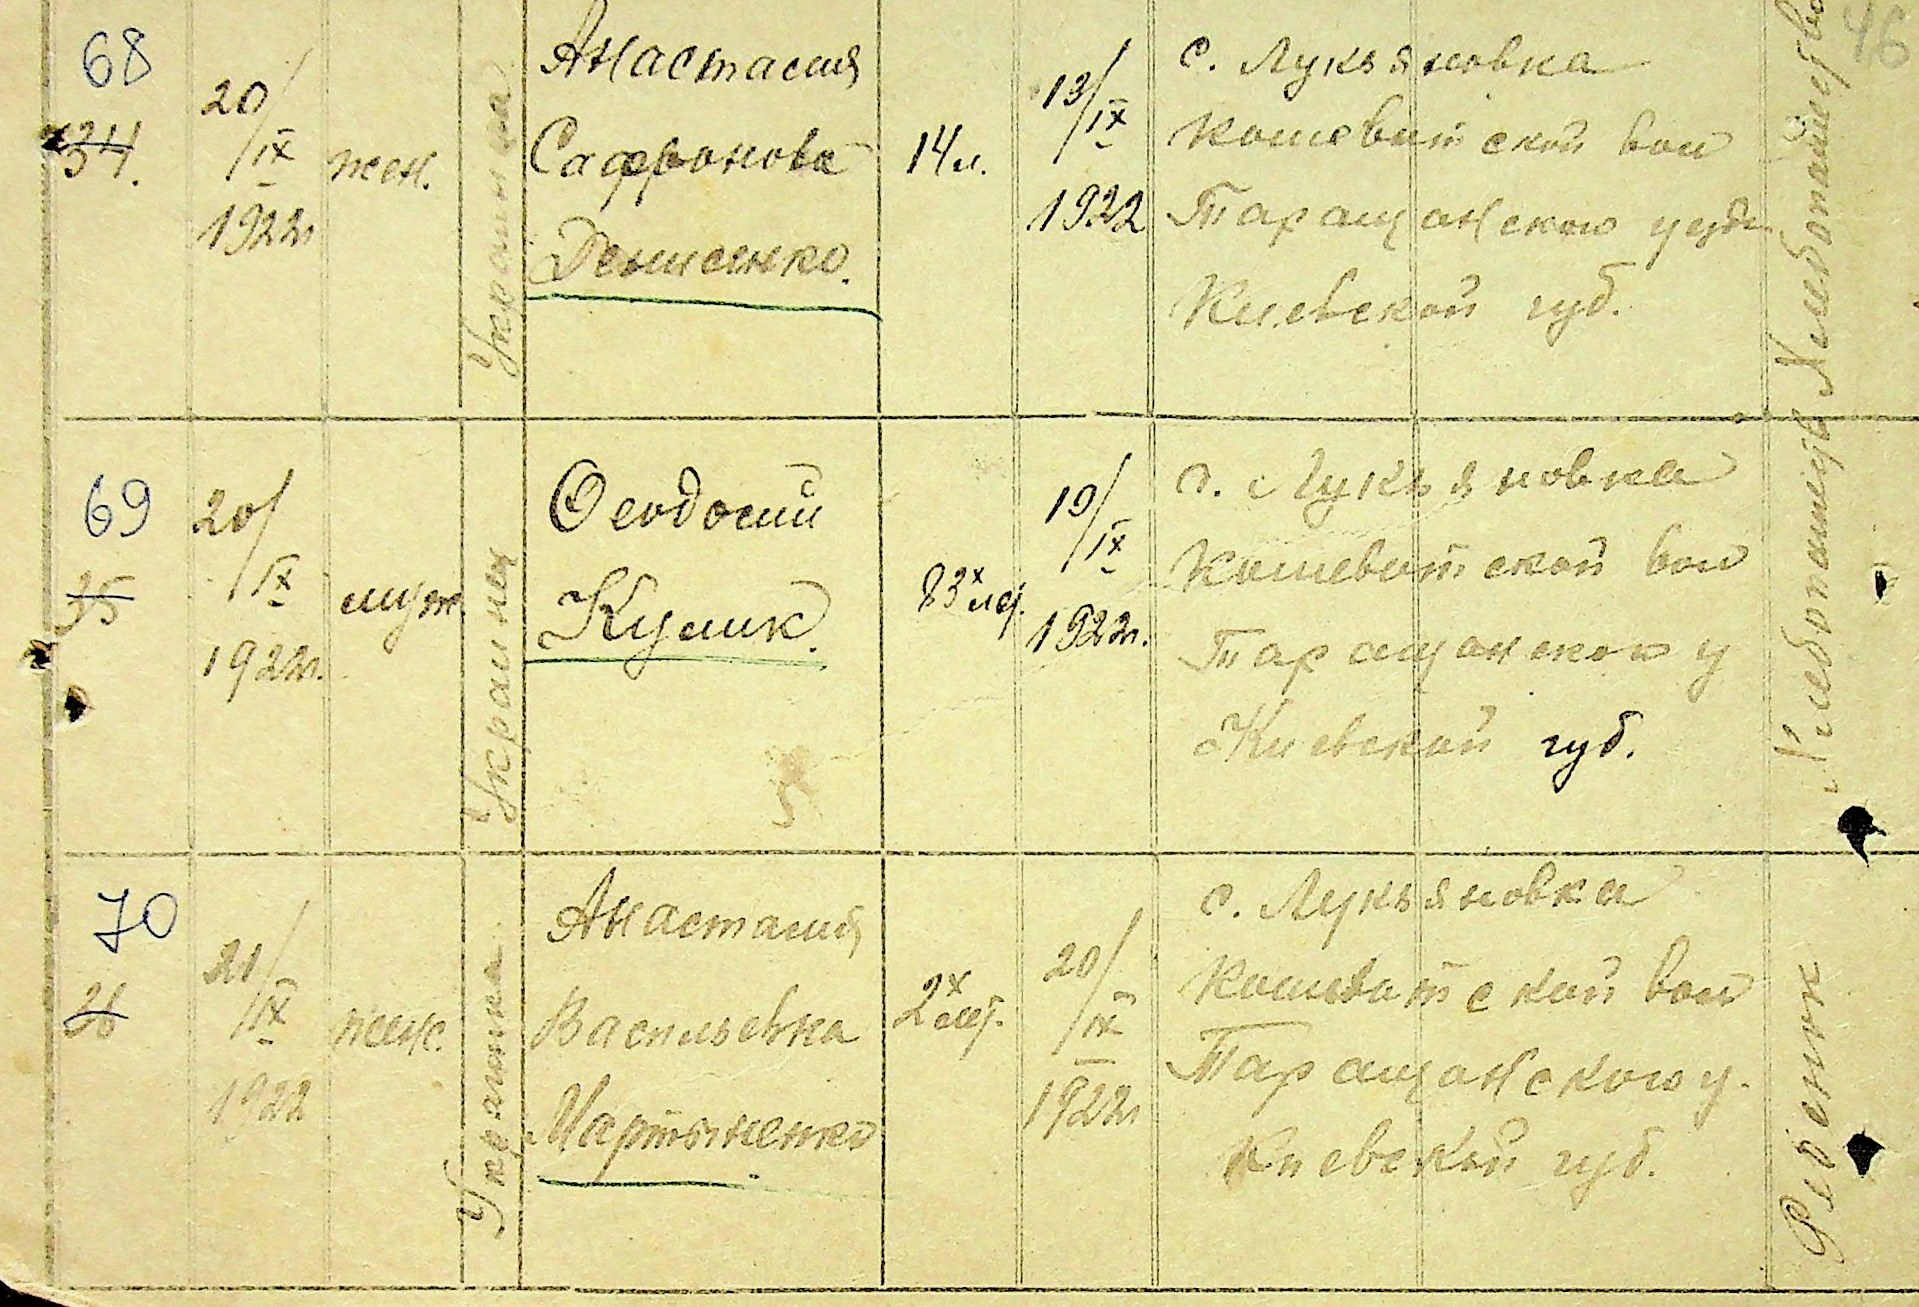 46
68
34.
20/IX
1922г
жен.
Украинка
Анастасия
Сафронова
Денисенко.
14 л.
13/IX
1922
с. Лукьяновка
Кошеватской вол
Таращанского уезда
Киевской губ.
Хлебопашество
69
35
20/IX
1922г.
муж.
Украинец
Феодосий
Кулик.
83х лет.
19/IX
1922г.
с. Лукьяновка
Кошеватской вол
Таращанского у
Киевской губ.
Хлебопашец
70
36
21/IX
1922
жен.
Украинка
Анастасия
Васильевна
Мартыненко
2х лет.
20/IX
1922г
с. Лукьяновка
Кошеватской вол
Таращанского у.
Киевской губ.
Ребенок